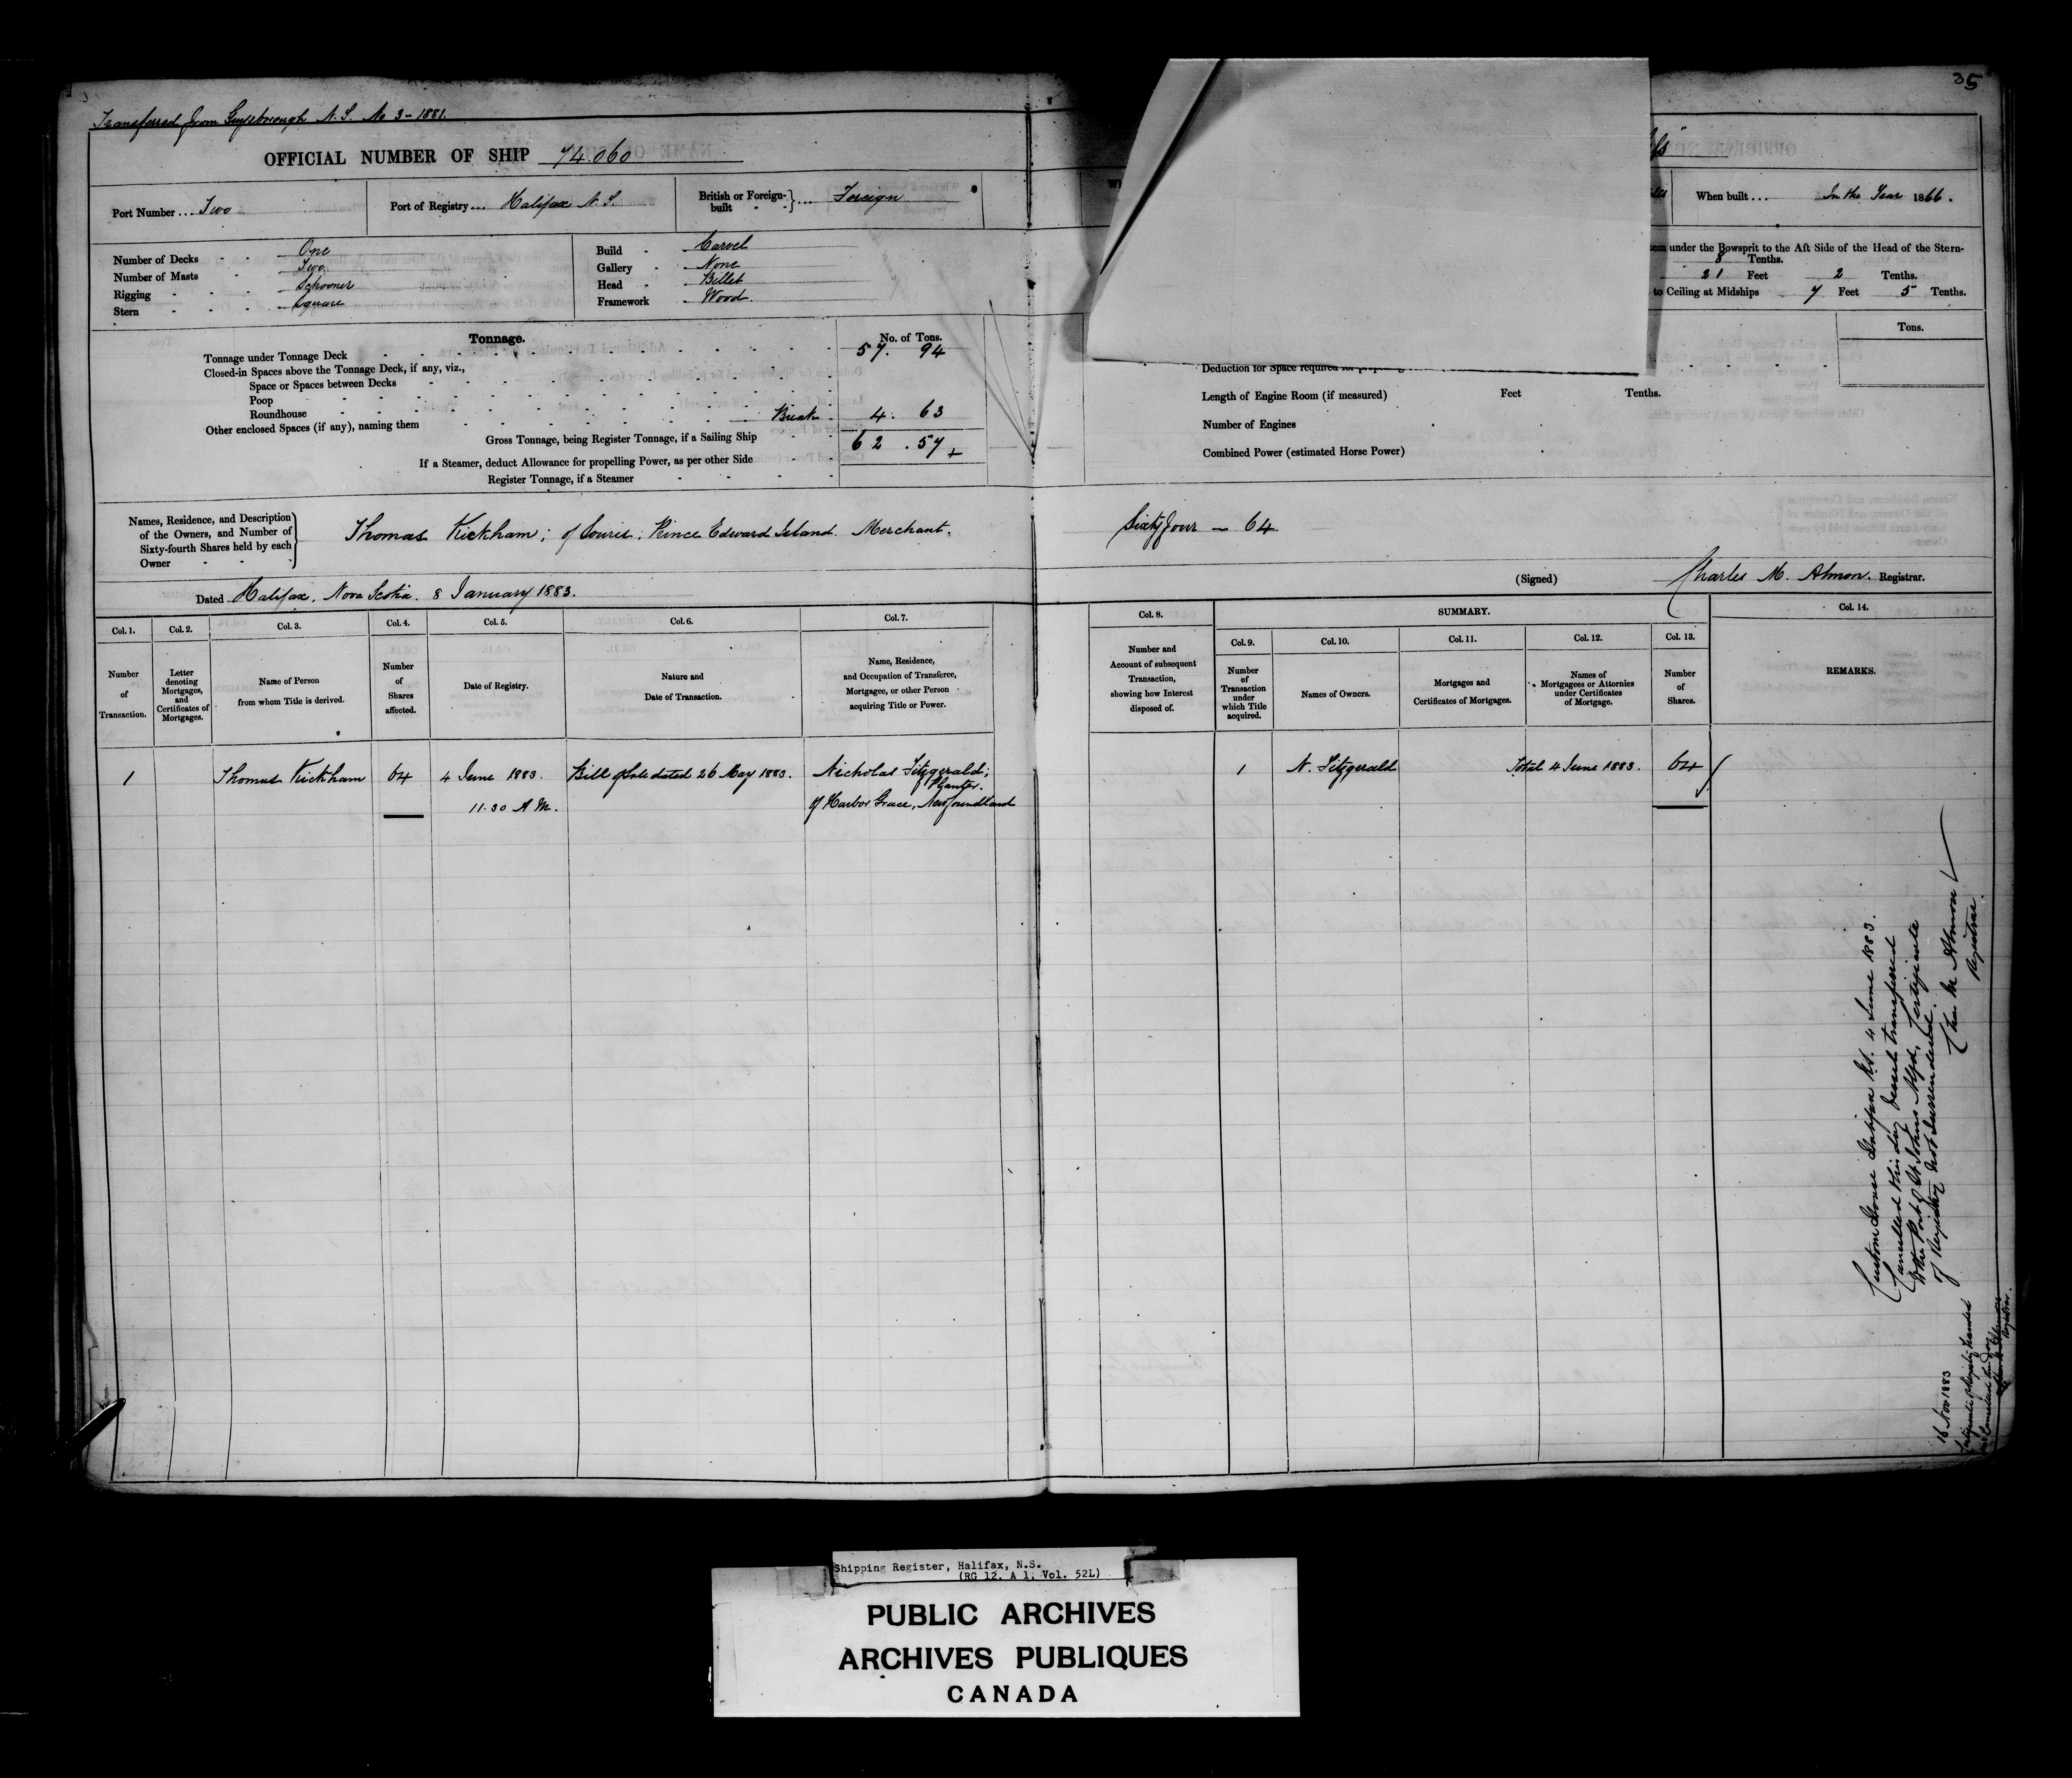 35
Transferred from Guysborough N. S. No 3 - 1881.
OFFICIAL NUMBER OF SHIP 74.060
Port Number ... Two
Port of Registry ... Halifax N. S.
British or Foreign-built } ... Foreign
When built ... In the Year 1866.
Number of Decks - - One
Number of Masts - Two
Rigging - - - Schooner
Stern - - - - Square
Build - Carvel
Gallery - None
Head - Billet
Framework - Wood
under the Bowsprit to the Aft Side of the Head of the Stern-
8 Tenths.
21 Feet 2 Tenths.
to Ceiling at Midships 7 Feet 5 Tenths.
Tonnage.
No. of Tons.
Tonnage under Tonnage Deck 57. 94
Closed-in Spaces above the Tonnage Deck, if any, viz.,
Space or Spaces between Decks
Poop
Roundhouse
Other enclosed Spaces (if any), naming them Break 4. 63
Gross Tonnage, being Register Tonnage, if a Sailing Ship 62.57
If a Steamer, deduct Allowance for propelling Power, as per other Side
Register Tonnage, if a Steamer
Tons.
Deduction for Space required for
Length of Engine Room (if measured) Feet Tenths.
Number of Engines
Combined Power (estimated Horse Power)
Names, Residence, and Description
of the Owners, and Number of
Sixty-fourth Shares held by each
Owner
Thomas Kickham; of Souris; Prince Edward Island. Merchant.
Sixty four — 64
Dated Halifax, Nova Scotia. 8 January 1883.
(Signed) Charles M. Almon. Registrar.
Col. 1.
Number
of
Transaction.
Col. 2.
Letter
denoting
Mortgages,
and
Certificates of
Mortgages.
Col. 3.
Name of Person
from whom Title is derived.
Col. 4.
Number
of
Shares
affected.
Col. 5.
Date of Registry.
Col. 6.
Nature and
Date of Transaction.
Col. 7.
Name, Residence,
and Occupation of Transferee,
Mortgagee, or other Person
acquiring Title or Power.
Col. 8.
Number and
Account of subsequent
Transaction,
showing how Interest
disposed of.
SUMMARY.
Col. 9.
Number
of
Transaction
under
which Title
acquired.
Col. 10.
Names of Owners.
Col. 11.
Mortgages and
Certificates of Mortgages.
Col. 12.
Names of
Mortgagees or Attornies
under Certificates
of Mortgage.
Col. 13.
Number
of
Shares.
Col. 14.
REMARKS.
1 Thomas Kickham 64 4 June 1883. Bill of Sale dated 26 May 1883. Nicholas Fitzgerald;
Planter.
11.30 A.M. of Harbor Grace, Newfoundland
1 N. Fitzgerald Total 4 June 1883. 64
Custom House Halifax NS. 4 June 1883.
Cancelled this day Vessel transferred
to the Port of St Johns Nfd, Certificate
of Registry not surrendered.
Chas M Almon
Registrar.
16 Nov 1883
Certificate of Registry handed
in & Cancelled this day
Registrar.
Shipping Register, Halifax, N.S.
(RG 12, A 1, Vol. 52L)
PUBLIC ARCHIVES
ARCHIVES PUBLIQUES
CANADA